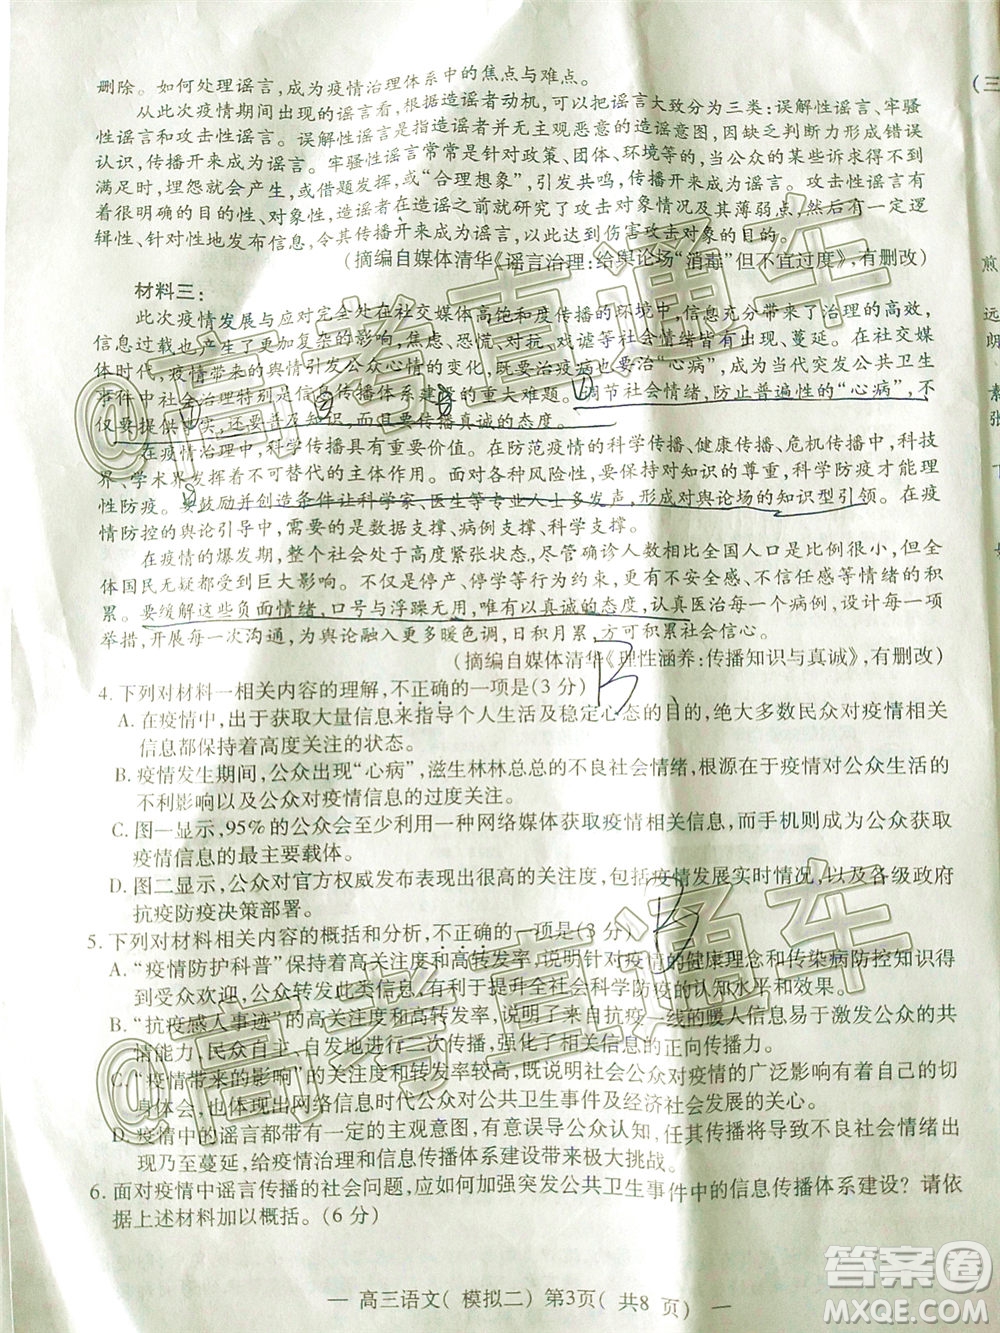 删除。如何处理谣言,成为疫情治理体系中的焦点与难点。
从此次疫情期间出现的谣言看,根据造谣者动机,可以把谣言大致分为三类:误解性谣言、牢骚
性谣言和攻击性谣言。误解性谣言是造谣者并无主观恶意的造谣意图,因缺乏判断力形成错误
认识,传播开来成为谣言。牢骚性谣言常常是针对政策、团体、环境等,当公众的某些诉求没有得到
满足时,埋怨就会产生,或借题发挥,或“合理想象”,引发共鸣,传播开来成为谣言。攻击性谣言有
着很明确的目的性、对象性,造谣者在造谣之前就研究了攻击对象情况及其薄弱点,然后有一定逻
辑性、针对性地发布信息,令其传播开来成为谣言,以此达到伤害攻击对象的目的。
(摘编自媒体清华《谣言治理:给舆论场“消毒”但不宜过度》,有删改)
材料三:
此次疫情发展与应对完全处在社交媒体高饱和度传播的环境中,信息充分带来了治理的高效,
信息过载也产生了更加复杂的影响,焦虑、恐慌、对抗、诋毁等社会情绪皆有出现、蔓延。在社交媒
体时代,疫情带来的舆情引发公众心情的变化,既要治疫病也要治“心病”,成为当代突发公共卫生
事件中社会治理特别是信息传播体系建设的重大难题。调节社会情绪,防止普遍性的“心病”,不
仅要提供事实,还要普及知识,而且要传播真诚的态度。
在疫情治理中,科学传播具有重要价值。在防范疫情的科学传播、健康传播、危机传播中,科技
界、学术界发挥着不可替代的主体作用。面对各种风险性、危机性情况,要保持对知识的尊重,科学防疫才能是
理性防疫。要鼓励并创造条件让科学家、医生等专业人士多发声,形成对舆论场的知识型引领。在疫
情防控的舆论引导中,需要的是数据支撑、病例支撑、科学支撑。
在疫情的爆发期,整个社会处于高度紧张状态,尽管确诊人数相比全国人口比例很小,但对全
体国民无疑都造成了巨大影响。不仅是停产、停学等行为约束,更有焦虑、不安等不良情绪的积
累。要缓解这些负面情绪,口号与浮躁无用,唯有以真诚的态度,认真医治每一个病例,设计每一项
举措,开展每一次沟通,为舆论融入更多暖色调,日积月累,方可积累社会信心。
(摘编自媒体清华《理性涵养:传播知识与真诚》,有删改)
4. 下列对材料一相关内容的理解,不正确的一项是(3分)
A. 在疫情中,出于获取大量信息来指导个人生活及稳定心态的目的,绝大多数民众对疫情相关
信息都保持着高度关注的状态。
B. 疫情发生期间,公众出现“心病”,滋生林林总总的不良社会情绪,根源在于疫情对公众生活的
不利影响以及公众对疫情信息的过度关注。
C. 图一显示,95%的公众会至少利用一种网络媒体获取疫情相关信息,而手机则成为公众获取
疫情信息的最主要载体。
D. 图二显示,公众对官方权威发布表现出很高的关注度,包括疫情发展实时情况,以及各级政府
抗疫防疫决策部署。
5. 下列对材料相关内容的概括和分析,不正确的一项是(3分)
A. “疫情防护科普”的高关注度和高转发率,说明针对疫情的健康理念和传染病防控知识获
得到受众欢迎,公众转发此类信息,有助于提升全社会科学防疫的认知水平和效果。
B. “抗疫感人事迹”的高关注度和高转发率,原因在于来自抗疫一线的暖人信息易于激发公众的共
情能力,民众自主、自发地进行二次传播,强化了信息的正向传播力。
C. “疫情带来的影响”的关注度与转发率较高,说明社会公众对疫情的广泛影响有深刻的切
身体会,也体现出网络信息时代公众对公共卫生事件及经济社会发展的关心。
D. 疫情中的谣言都带有一定的主观意图,有意误导公众认知,任其传播将导致不良社会情绪出
现乃至蔓延,给疫情治理和信息传播体系建设带来巨大挑战。
6. 面对疫情中谣言传播的社会问题,应如何加强突发公共卫生事件中的信息传播体系建设?请依
据上述材料加以概括。(6分)
— 高三语文(模拟二)第3页(共8页) —
(三
煎
远
朗
素
张
B
B
@高考直通车
@高考直通车
答案圈
MXQE.COM